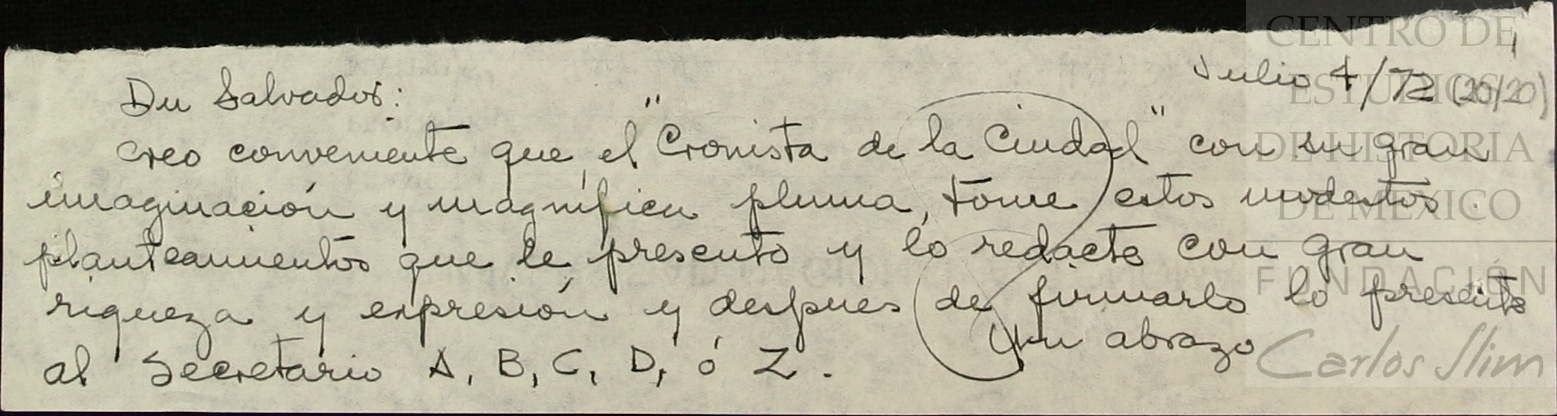 Julio 4/72 (20/20)
Du Salvador:
creo conveniente que el "Cronista de la Ciudad" con su gran
imaginación y magnífica pluma, tome estos modestos
planteamientos que le presento y lo redacte con gran
riqueza y expresión y después de firmarlo lo presente
al Secretario A, B, C, D, ó Z.
Un abrazo
CENTRO DE
ESTUDIOS
DE HISTORIA
DE MÉXICO
FUNDACIÓN
Carlos Slim